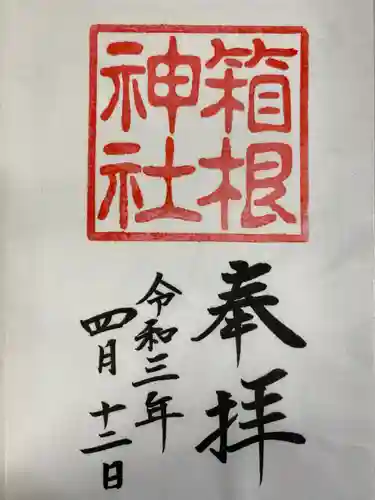 箱根
神社
奉拝
令和三年
四月十二日